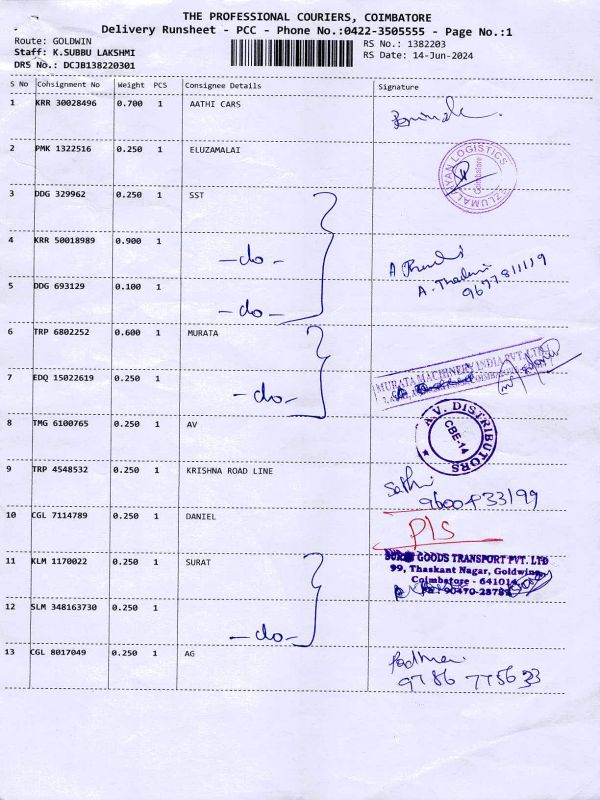 THE PROFESSIONAL COURIERS, COIMBATORE
Delivery Runsheet - PCC - Phone No.:0422-3505555 - Page No.:1
Route: GOLDWIN
Staff: K.SUBBU LAKSHMI
DRS No.: DCJB138220301
RS No.: 1382203
RS Date: 14-Jun-2024
S No Consignment No Weight PCS Consignee Details Signature
1 KRR 30028496 0.700 1 AATHI CARS
2 PMK 1322516 0.250 1 ELUZAMALAI
LOGISTICS
Coimbatore
3 DDG 329962 0.250 1 SST
4 KRR 50018989 0.900 1 -do-
A. Thadani
9677811119
5 DDG 693129 0.100 1 -do-
6 TRP 6802252 0.600 1 MURATA
MURATA MACHINERY INDIA PVT. LTD.
7 EDQ 15022619 0.250 1 -do-
8 TMG 6100765 0.250 1 AV
A.V. DISTRIBUTORS
CBE-14
9 TRP 4548532 0.250 1 KRISHNA ROAD LINE
Sathi
9600433199
10 CGL 7114789 0.250 1 DANIEL
P/s
11 KLM 1170022 0.250 1 SURAT
SURAT GOODS TRANSPORT PVT. LTD
99, Thaskant Nagar, Goldwins
Coimbatore - 641014
12 SLM 348163730 0.250 1 -do-
13 CGL 8017049 0.250 1 AG
Padma
9786 775633